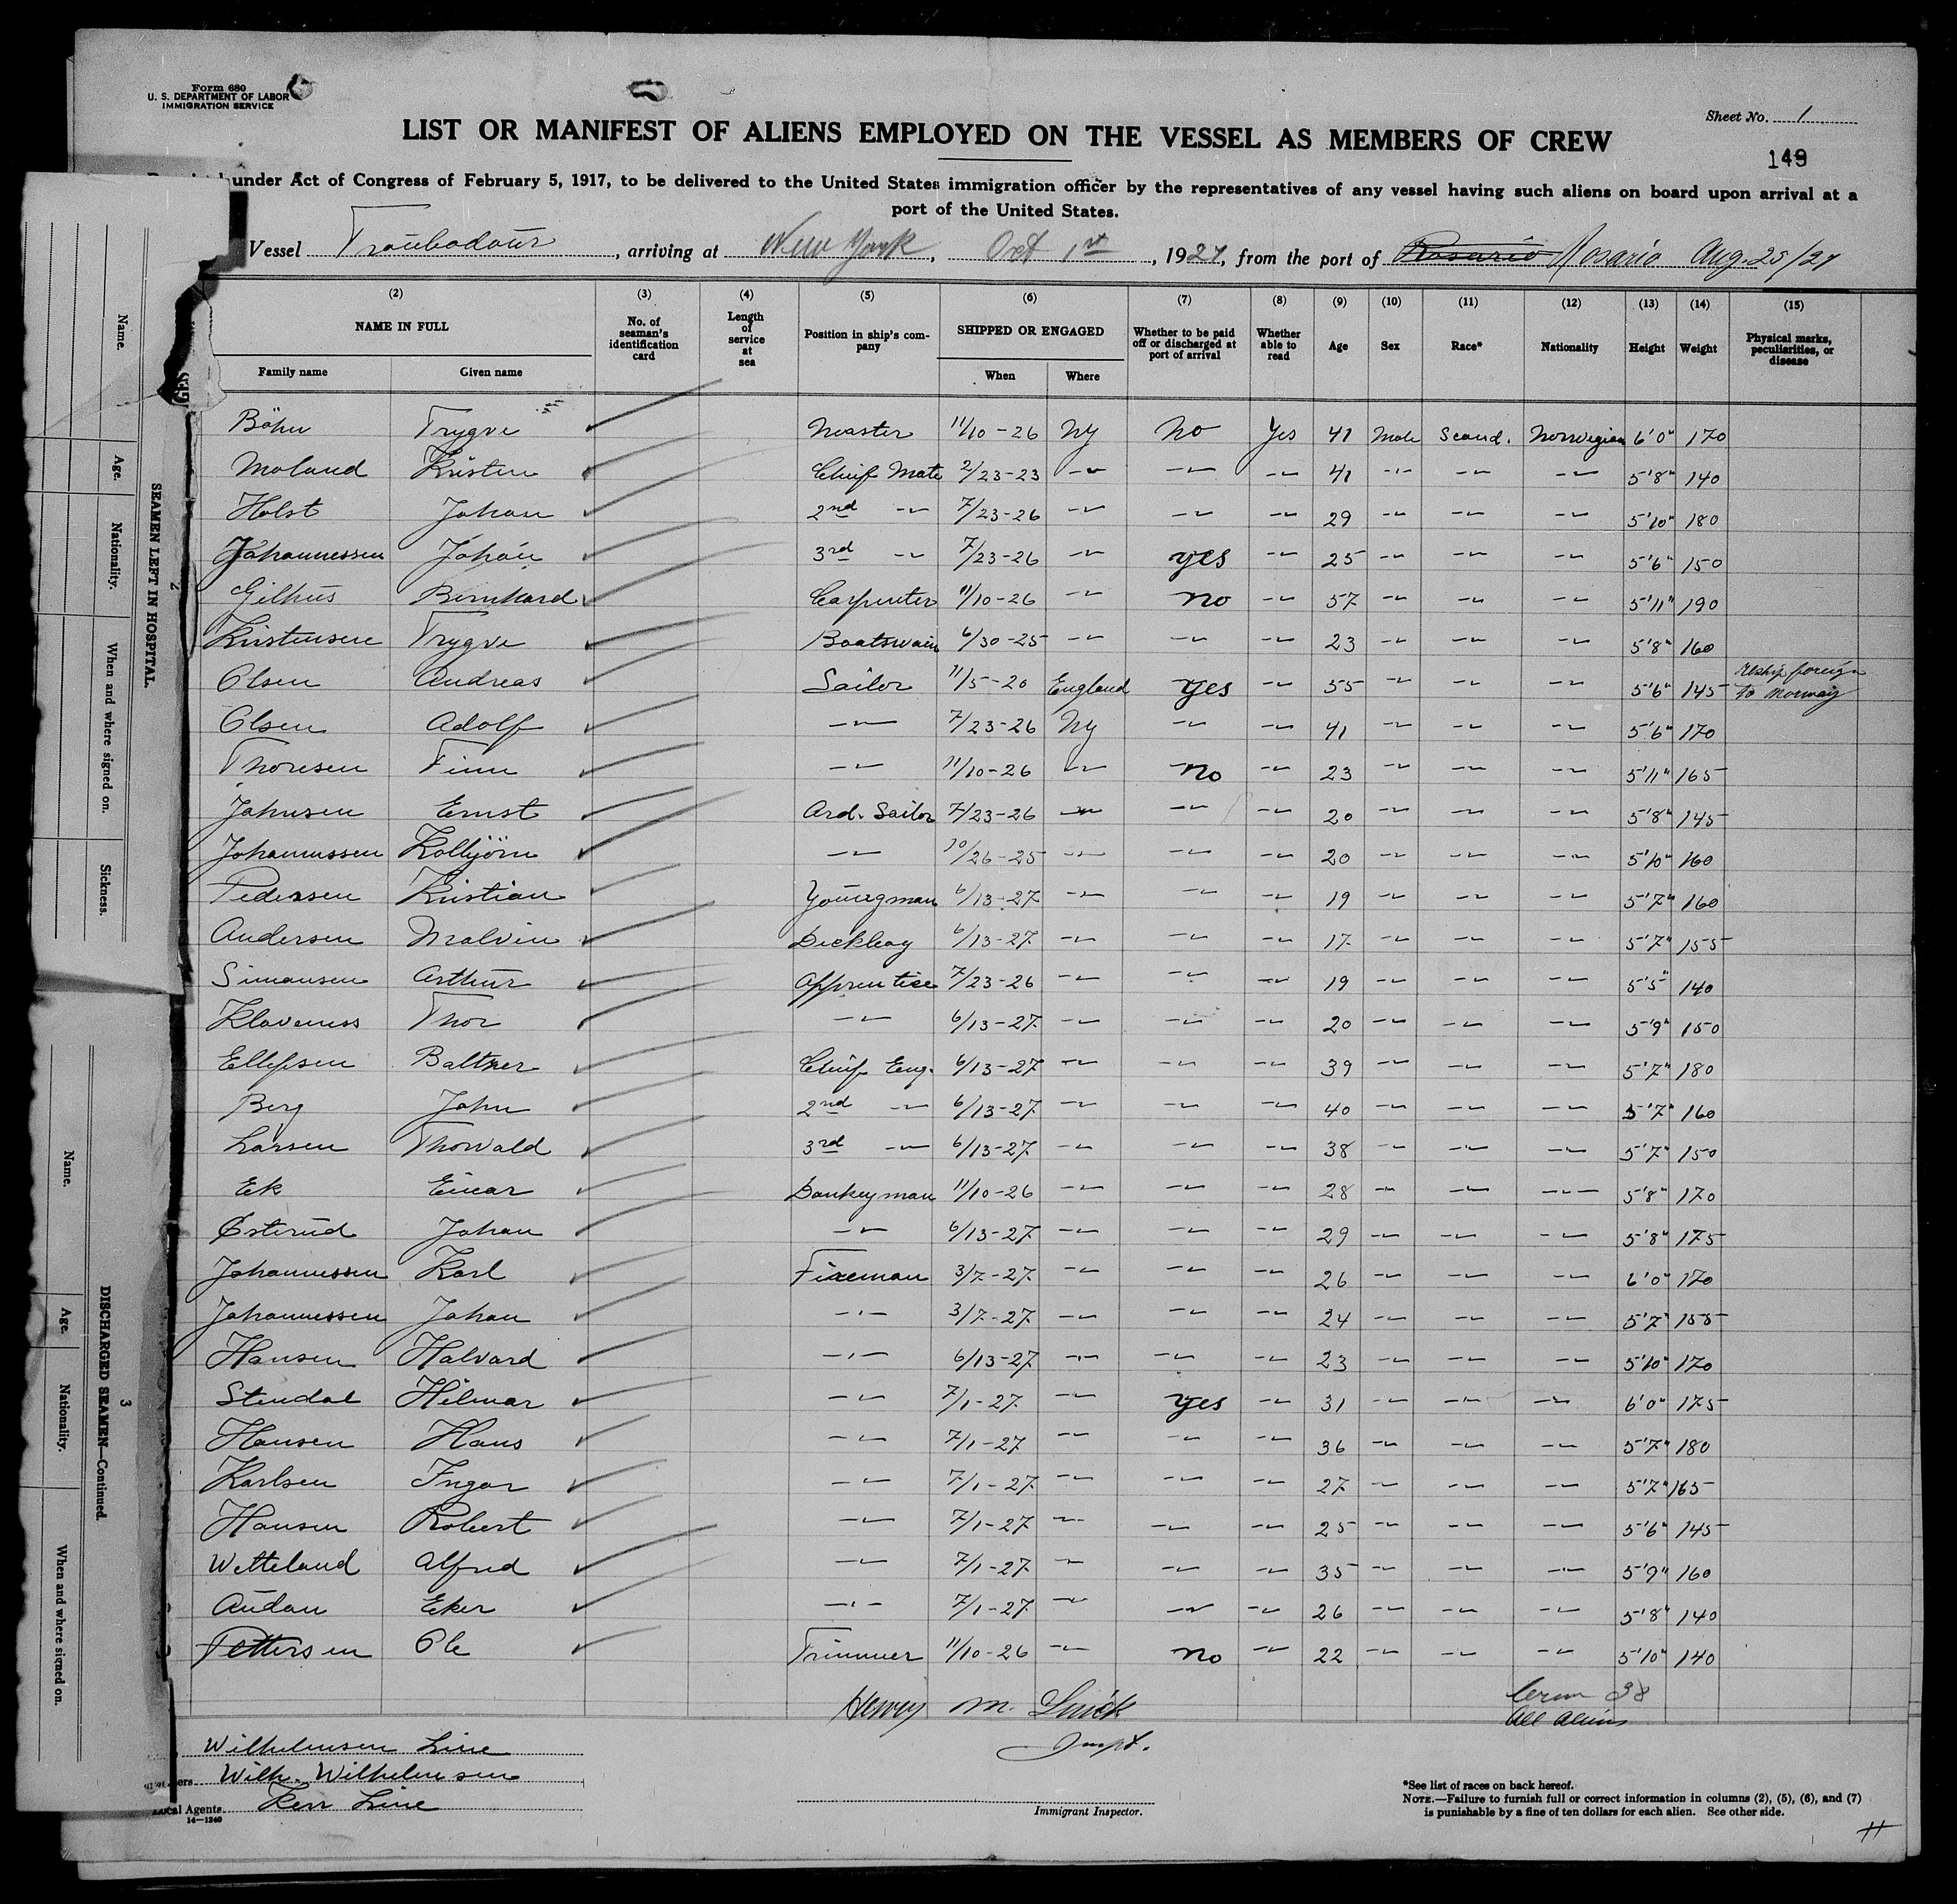 Form 680
U. S. DEPARTMENT OF LABOR
IMMIGRATION SERVICE
Sheet No. 1
LIST OR MANIFEST OF ALIENS EMPLOYED ON THE VESSEL AS MEMBERS OF CREW
149
under Act of Congress of February 5, 1917, to be delivered to the United States immigration officer by the representatives of any vessel having such aliens on board upon arrival at a
port of the United States.
Vessel Troubadour, arriving at New York, Oct 1st, 1927, from the port of Rosario Rosario Aug. 25/27
(2) (3) (4) (5) (6) (7) (8) (9) (10) (11) (12) (13) (14) (15)
NAME IN FULL No. of seaman's identification card Length of service at sea Position in ship's company SHIPPED OR ENGAGED Whether to be paid off or discharged at port of arrival Whether able to read Age Sex Race* Nationality Height Weight Physical marks, peculiarities, or disease
Family name Given name When Where
Böhn Trygve Master 11/10-26 Ny No Yes 41 Male Scand. Norwegian 6'0" 170
Moland Kristen Chief Mate 2/23-23 -"- -"- -"- 41 -"- -"- -"- 5'8" 140
Holst Johan 2nd -"- 7/23-26 -"- -"- -"- 29 -"- -"- -"- 5'10" 180
Johannessen Johan 3rd -"- 7/23-26 -"- yes -"- 25 -"- -"- -"- 5'6" 150
Gilhus Bernhard Carpenter 11/10-26 -"- no -"- 57 -"- -"- -"- 5'11" 190
Kristensen Trygve Boatswain 6/30-25 -"- -"- -"- 23 -"- -"- -"- 5'8" 160
Olsen Andreas Sailor 11/5-20 England yes -"- 55 -"- -"- -"- 5'6" 145 reship foreign to Norway
Olsen Adolf -"- 7/23-26 Ny -"- -"- 41 -"- -"- -"- 5'6" 170
Thoresen Finn -"- 11/10-26 -"- no -"- 23 -"- -"- -"- 5'11" 165
Johnsen Ernst Ord. Sailor 7/23-26 -"- -"- -"- 20 -"- -"- -"- 5'8" 145
Johannessen Kolbjörn -"- 10/26-25 -"- -"- -"- 20 -"- -"- -"- 5'10" 160
Pedersen Kristian Youngman 6/13-27 -"- -"- -"- 19 -"- -"- -"- 5'7" 160
Andersen Malvin Deckboy 6/13-27 -"- -"- -"- 17 -"- -"- -"- 5'7" 155
Simonsen Arthur Apprentice 7/23-26 -"- -"- -"- 19 -"- -"- -"- 5'5" 140
Klaveness Thor -"- 6/13-27 -"- -"- -"- 20 -"- -"- -"- 5'9" 150
Ellefsen Baltzer Chief Eng. 6/13-27 -"- -"- -"- 39 -"- -"- -"- 5'7" 180
Berg John 2nd -"- 6/13-27 -"- -"- -"- 40 -"- -"- -"- 5'7" 160
Larsen Thorvald 3rd -"- 6/13-27 -"- -"- -"- 38 -"- -"- -"- 5'7" 150
Ek Einar Donkeyman 11/10-26 -"- -"- -"- 28 -"- -"- -"- 5'8" 170
Østerud Johan -"- 6/13-27 -"- -"- -"- 29 -"- -"- -"- 5'8" 175
Johannessen Karl Fireman 3/7-27 -"- -"- -"- 26 -"- -"- -"- 6'0" 170
Johannessen Johan -"- 3/7-27 -"- -"- -"- 24 -"- -"- -"- 5'7" 155
Hansen Halvard -"- 6/13-27 -"- -"- -"- 23 -"- -"- -"- 5'10" 170
Stendal Hilmar -"- 7/1-27 -"- yes -"- 31 -"- -"- -"- 6'0" 175
Hansen Hans -"- 7/1-27 -"- -"- -"- 36 -"- -"- -"- 5'7" 180
Karlsen Ingar -"- 7/1-27 -"- -"- -"- 27 -"- -"- -"- 5'7" 165
Hansen Robert -"- 7/1-27 -"- -"- -"- 25 -"- -"- -"- 5'6" 145
Wetteland Alfred -"- 7/1-27 -"- -"- -"- 35 -"- -"- -"- 5'9" 160
Audon Eker -"- 7/1-27 -"- -"- -"- 26 -"- -"- -"- 5'8" 140
Pettersen Ole Trimmer 11/10-26 -"- no -"- 22 -"- -"- -"- 5'10" 140
Henry M.
Inspt.
38
All aliens
Wilhelmsen Line
Wilh. Wilhelmsen
Local Agents Kerr Line
14—1240
Immigrant Inspector.
*See list of races on back hereof.
NOTE.—Failure to furnish full or correct information in columns (2), (5), (6), and (7)
is punishable by a fine of ten dollars for each alien. See other side.
2
SEAMEN LEFT IN HOSPITAL.
Name. Age. Nationality. When and where signed on. Sickness.
3
DISCHARGED SEAMEN—Continued.
Name. Age. Nationality. When and where signed on.